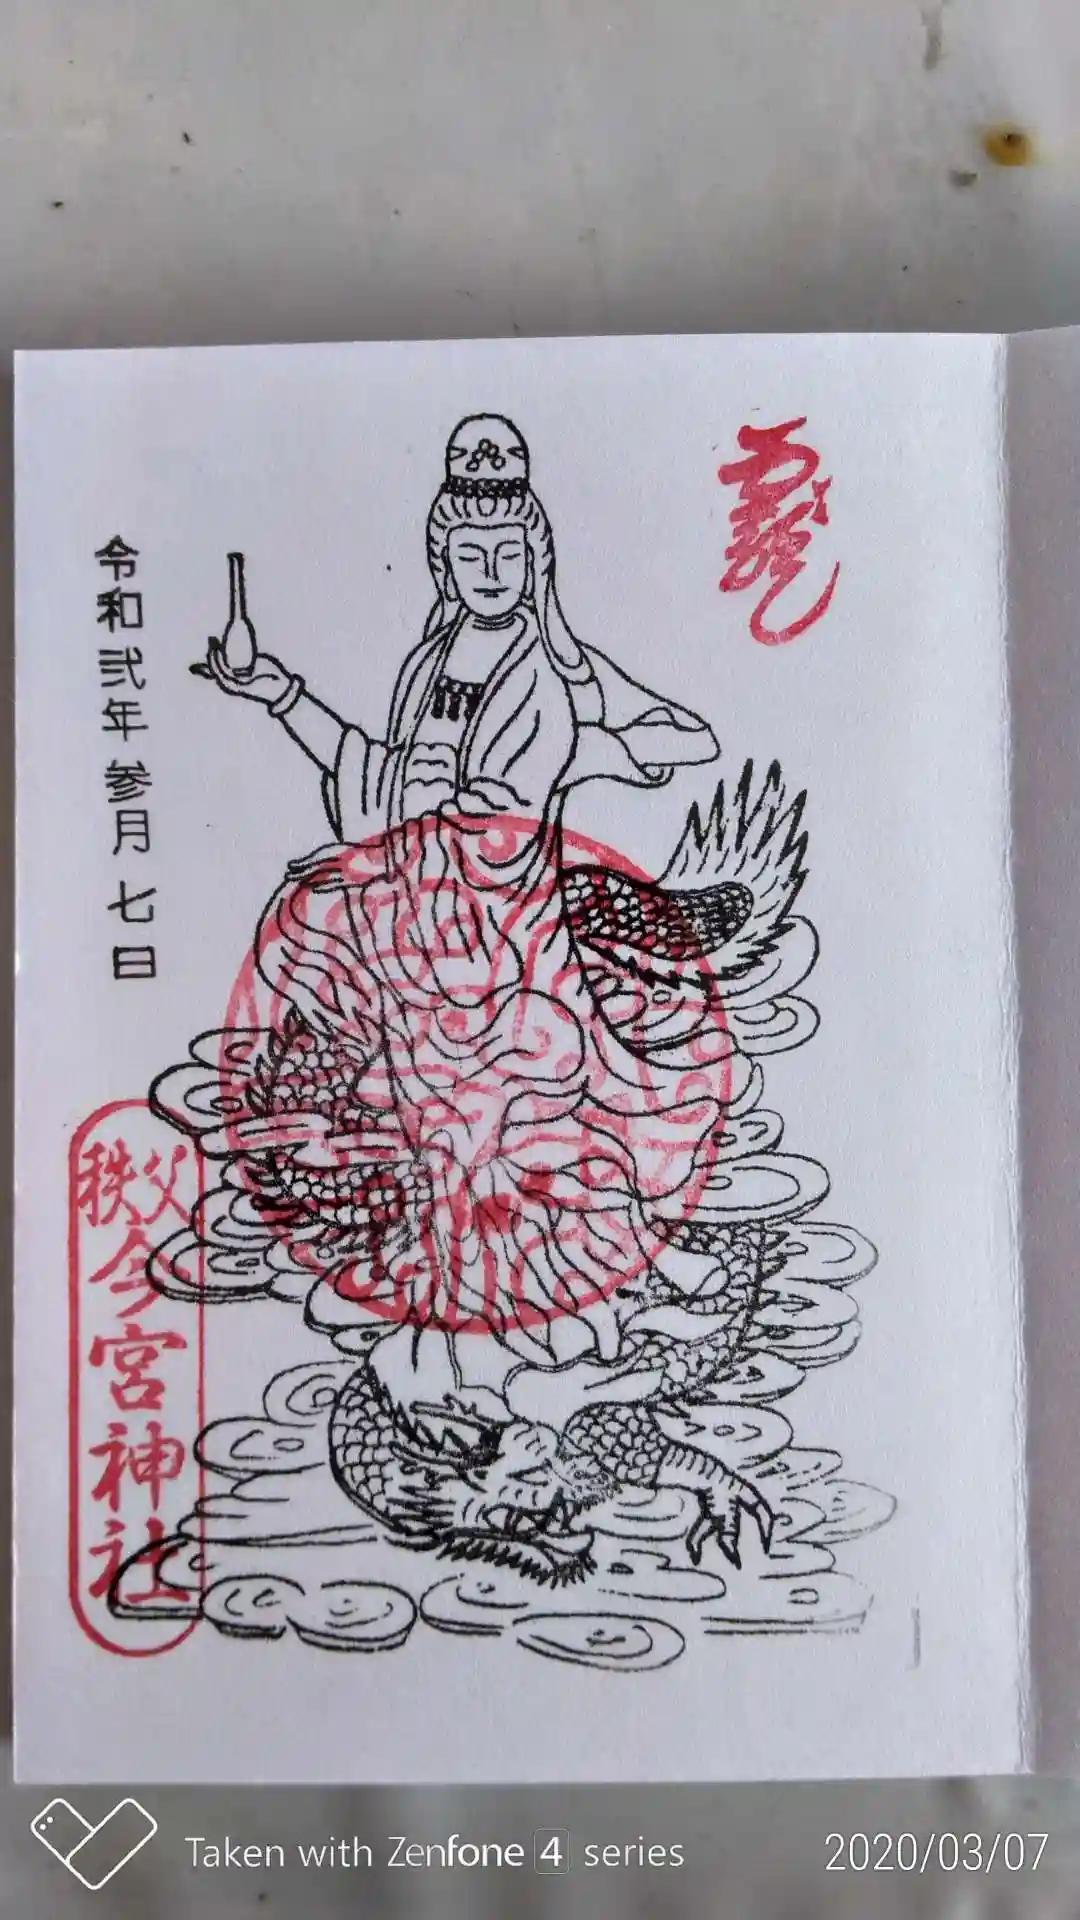 龍
令和弐年参月七日
秩父今宮神社
Taken with Zenfone 4 series
2020/03/07